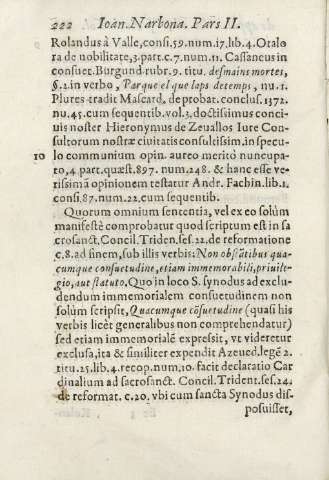 222 Ioan. Narbona. Pars II.
Rolandus à Valle, consi. 59. num. 17. lib. 4. Otalo
ra de nobilitate, 3. part. c. 7. num. 11. Cassaneus in
consuet. Burgund. rubr. 9. titu. desmains mortes,
§. 2. in verbo, Parque el que laps detemps, nu. 1.
Plures tradit Mascard, de probat. conclus. 1372.
nu. 45. cum sequentib. vol. 3. doctissimus conci
uis noster Hieronymus de Zeuallos Iure Con-
sultorum nostræ ciuitatis consultissim. in specu-
10 lo communium opin. aureo meritò nuncupa-
to, 4 part. quæst. 897. num. 248. & hanc esse ve-
rissimã opinionem testatur Andr. Fachin. lib. 1.
consi. 87. num. 22. cum sequentib.
Quorum omnium sententia, vel ex eo solùm
manifestè comprobatur quod scriptum est in sa
crosanct. Concil. Triden. ses. 22. de reformatione
c. 8. ad finem, sub illis verbis: Non obstãtibus qua-
cumque consuetudine, etiam immemorabili, priuile-
gio, aut statuto. Quo in loco S. synodus ad exclu
dendum immemorialem consuetudinem non
solùm scripsit, Quacumque cõsuetudine (quasi his
verbis licèt generalibus non comprehendatur)
sed etiam immemorialẽ expressit, vt videretur
exclusa, ita & similiter expendit Azeued. lege 2.
titu. 25. lib. 4. recop. num. 10. facit declaratio Car
dinalium ad sacrosanct. Concil. Trident. ses. 24.
de reformat. c. 20. vbi cum sancta Synodus dis-
posuisset,